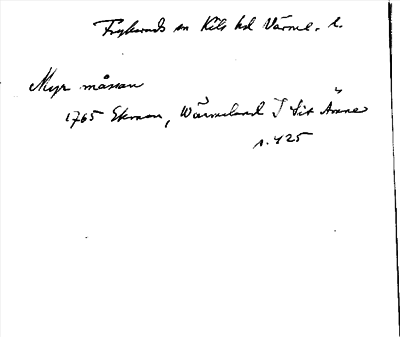 Frykeruds sn Kils hd Värml. l.
Myr måssan
1765 Ekman, Wärmeland I sit Ämne
s. 425